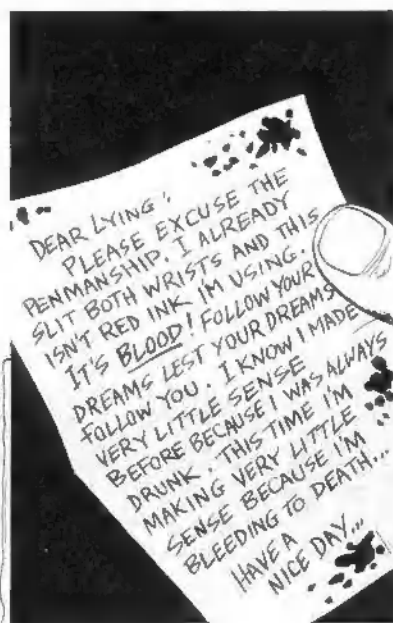 DEAR LYING:
PLEASE EXCUSE THE
PENMANSHIP. I ALREADY
SLIT BOTH WRISTS AND THIS
ISN'T RED INK I'M USING.
IT'S BLOOD! FOLLOW YOUR
DREAMS LEST YOUR DREAMS
FOLLOW YOU. I KNOW I MADE
VERY LITTLE SENSE
BEFORE BECAUSE I WAS ALWAYS
DRUNK. THIS TIME I'M
MAKING VERY LITTLE
SENSE BECAUSE I'M
BLEEDING TO DEATH...
HAVE A
NICE DAY...